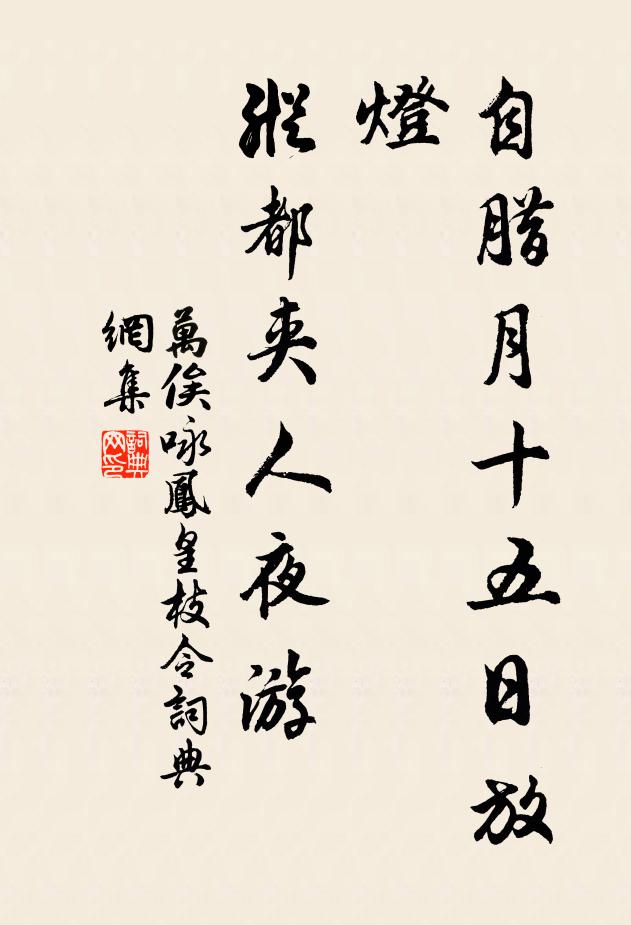 自腊月十五日放
燈
縱都夾人夜游
萬俟咏鳳皇枝令詞典
網集
詞典
网印